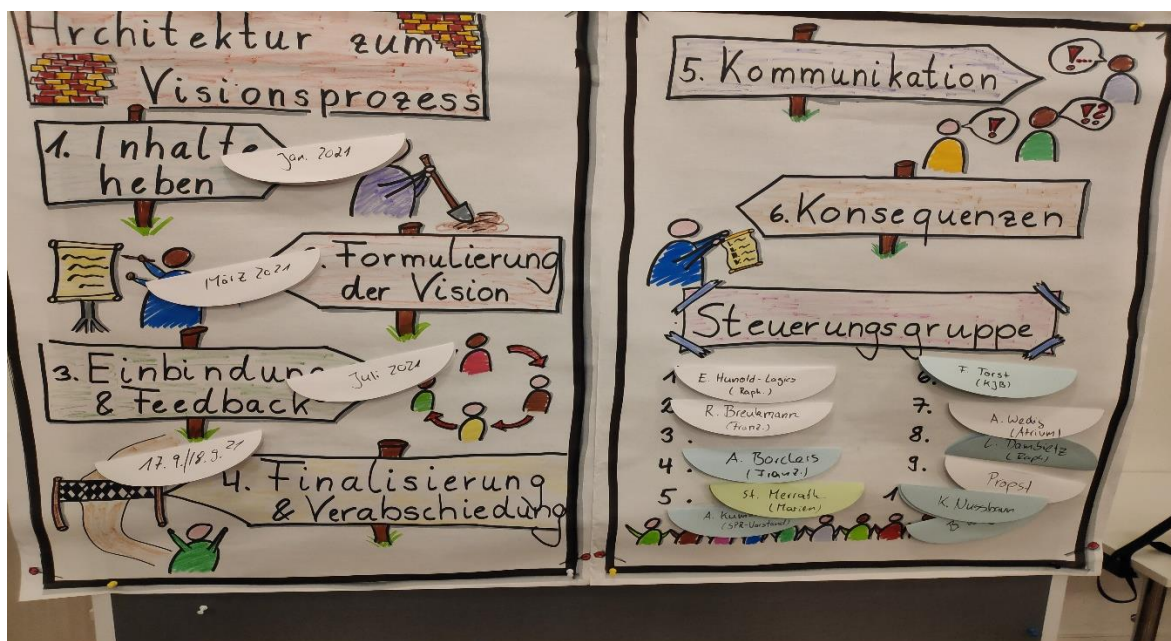 Architektur zum
Visionsprozess
1. Inhalte
heben
Jan. 2021
März 2021
. Formulierung
der Vision
3. Einbindung
& Feedback
Juli 2021
17.9./18.9.21
4. Finalisierung
& Verabschiedung
5. Kommunikation
!....
!
!?
6. Konsequenzen
Steuerungsgruppe
1
E. Hunold-Lagies
(Raph.)
2
R. Breukmann
(Franz.)
3.
4.
A. Borclais
(Franz.)
5.
St. Merrath
(Marien)
A.
(SPR-Vorstand)
6.
F. Torst
(KJB)
7.
A. Wedig
(Atrium)
8.
(Raph.)
9.
Propst
1
K. Nussbaum